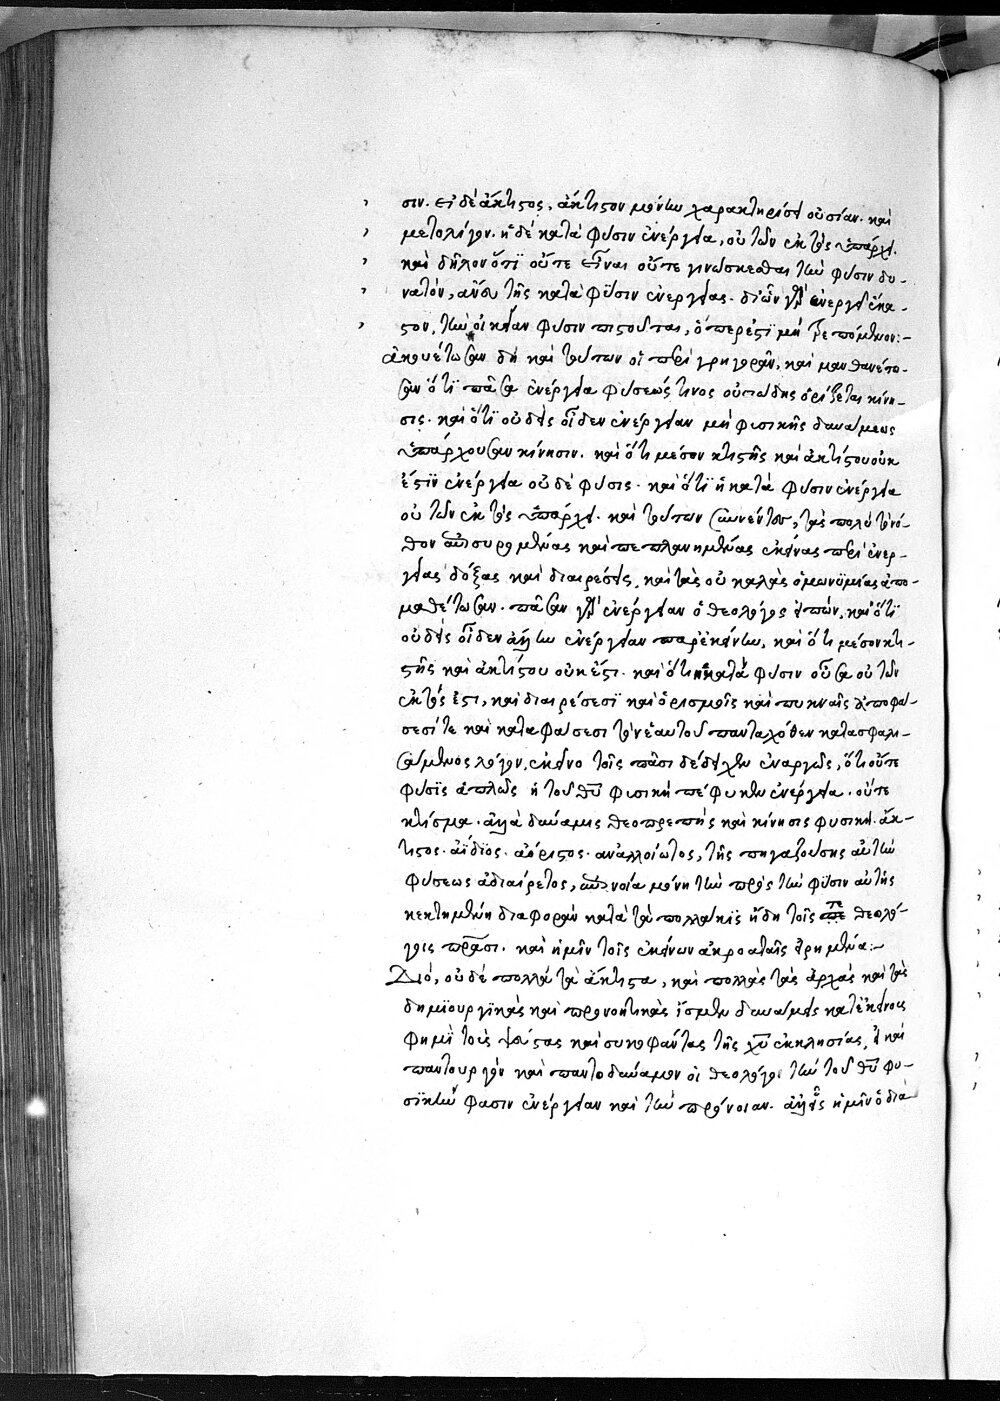 σιν. εἰ δὲ ἄκτιστος, ἄκτιστον μόνην χαρακτηρίσει οὐσίαν. καὶ
μετολίγον. ἡ δὲ κατὰ φύσιν ἐνέργεια, οὐ τῶν ἐκτὸς ὑπάρχει.
καὶ δῆλον ὅτι οὔτε εἶναι οὔτε γινώσκεσθαι τὴν φύσιν δυ-
νατὸν, ἄνευ τῆς κατὰ φύσιν ἐνεργείας. δι' ὧν γὰρ ἐνεργεῖ ἕκα-
στον, τὴν οἰκείαν φύσιν πιστοῦται, ὅπερ ἐστὶ μὴ τρεπόμενον:-
ἀκουέτωσαν δὴ καὶ τούτων οἱ περὶ γρηγορᾶν, καὶ μανθανέτω-
σαν ὅτι πᾶσα ἐνέργεια φύσεώς τινος οὐσιώδης ὁρίζεται κίνη-
σις. καὶ ὅτι οὐδεὶς οἶδεν ἐνέργειαν μὴ φυσικῆς δυνάμεως
ὑπάρχουσαν κίνησιν. καὶ ὅτι μέσον κτιστῆς καὶ ἀκτίστου οὐκ
ἔστιν ἐνέργεια οὐδὲ φύσις. καὶ ὅτι ἡ κατὰ φύσιν ἐνέργεια
οὐ τῶν ἐκτὸς ὑπάρχει. καὶ τούτων συνέντες, τὰς πολὺ τὸ νό-
θον ἐπισυρομένας καὶ πεπλανημένας ἐκείνας περὶ ἐνερ-
γείας δόξας καὶ διαιρέσεις, καὶ τὰς οὐ καλὰς ὁμωνυμίας ἀπο-
μαθέτωσαν. πᾶσαν γὰρ ἐνέργειαν ὁ θεολόγος εἰπών, καὶ ὅτι
οὐδεὶς οἶδεν ἄλλην ἐνέργειαν παρ' ἐκείνην, καὶ ὅτι μέσον κτι-
στῆς καὶ ἀκτίστου οὐκ ἔστι. καὶ ὅτι ἡ κατὰ φύσιν οὖσα οὐ τῶν
ἐκτός ἐστι, καὶ διαιρέσεσι καὶ ὁρισμοῖς καὶ πυκναῖς ἀποφά-
σεσί τε καὶ καταφάσεσι τὸν ἑαυτοῦ πανταχόθεν κατασφαλι-
σάμενος λόγον, ἐκεῖνο τοῖς πᾶσι δέδειχεν ἐναργῶς, ὅτι οὔτε
φύσις ἁπλῶς ἡ τοῦ θῦ φυσικὴ πέφυκεν ἐνέργεια. οὔτε
κτίσμα. ἀλλὰ δύναμις θεοπρεπὴς καὶ κίνησις φυσική. ἄκ-
τιστος. ἀΐδιος. ἀόριστος. ἀναλλοίωτος, τῆς πηγαζούσης αὐτὴν
φύσεως ἀδιαίρετος, ἐπινοίᾳ μόνῃ τὴν πρὸς τὴν φύσιν αὐτῆς
κεκτημένη διαφορὰν κατὰ τὰ πολλάκις ἤδη τοῖς τε θεολό-
γοις πᾶσι. καὶ ἡμῖν τοῖς ἐκείνων ἀκροαταῖς εἰρημένα:-
Διό, οὐδὲ πολλὰ τὰ ἄκτιστα, καὶ πολλὰς τὰς ἀρχὰς καὶ τὰς
δημιουργικὰς καὶ προνοητικὰς ἴσμεν δυνάμεις κατ' ἐκείνους
φημὶ τοὺς ψεύστας καὶ συκοφάντας τῆς χῦ ἐκκλησίας, εἰ καὶ
παντουργὸν καὶ παντοδύναμον οἱ θεολόγοι τὴν τοῦ θῦ φυ-
σικήν φασιν ἐνέργειαν καὶ τὴν πρόνοιαν. ἀλλ' εἷς ἡμῖν ὁ διὰ